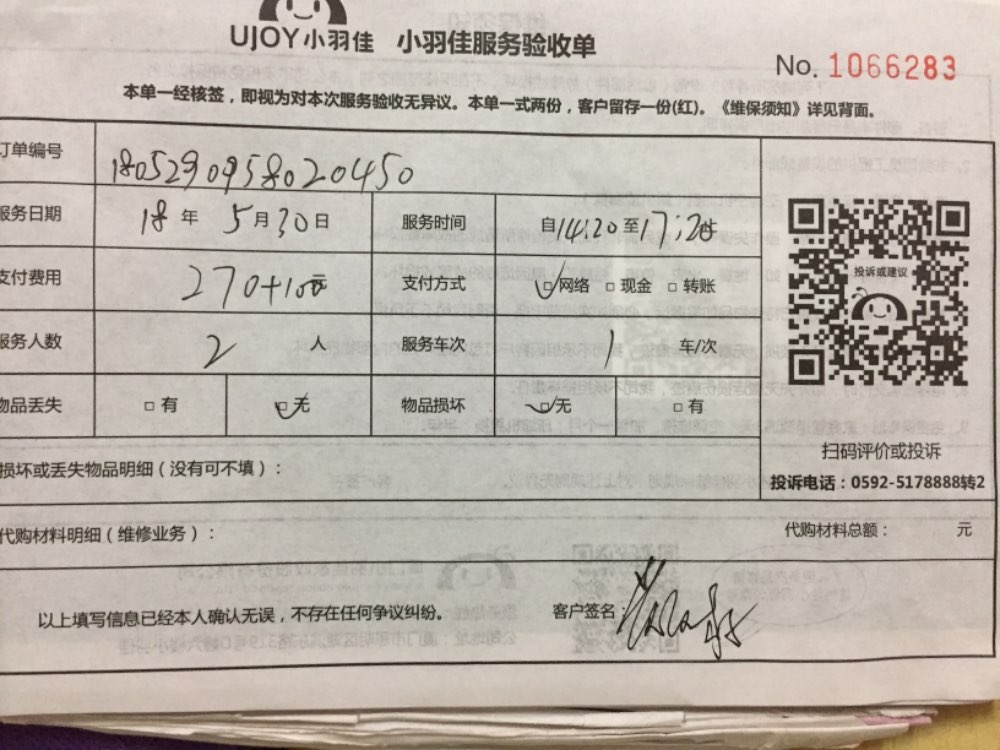 UJOY小羽佳 小羽佳服务验收单
No. 1066283
本单一经核签，即视为对本次服务验收无异议。本单一式两份，客户留存一份(红)。《维保须知》详见背面。
订单编号 180529095802045​0
服务日期 18 年 5 月 30 日 服务时间 自14:20至17:20
支付费用 270+100 支付方式 □网络 □现金 □转账
投诉或建议
服务人数 2 人 服务车次 1 车/次
物品丢失 □有 □无 物品损坏 □无 □有
扫码评价或投诉
损坏或丢失物品明细（没有可不填）：
投诉电话：0592-5178888转2
代购材料明细（维修业务）： 代购材料总额： 元
以上填写信息已经本人确认无误，不存在任何争议纠纷。 客户签名：